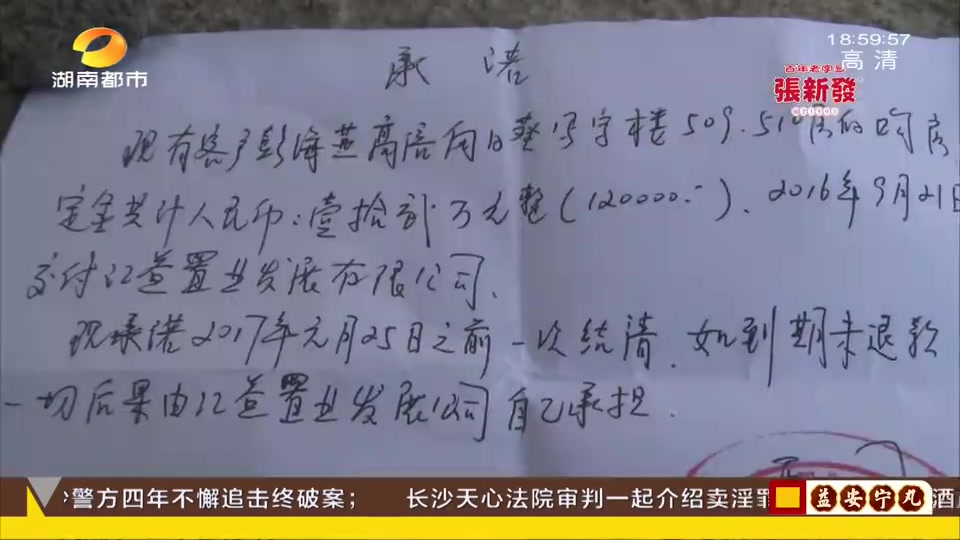 湖南都市
18:59:57
高清
百年老字号
張新發
承诺
现有客户彭海燕高倍向日葵写字楼509.510房的购房
定金共计人民币:壹拾贰万元整(120000.-)、2016年9月21日
交付江益置业发展有限公司、
现承诺2017年元月25日之前一次结清.如到期未退款
一切后果由江益置业发展公司自己承担.
警方四年不懈追击终破案; 长沙天心法院审判一起介绍卖淫罪
益安宁丸
酒